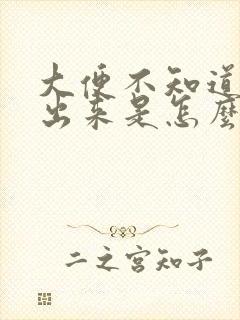 大便不知道
出来是怎麼
二之宫知子